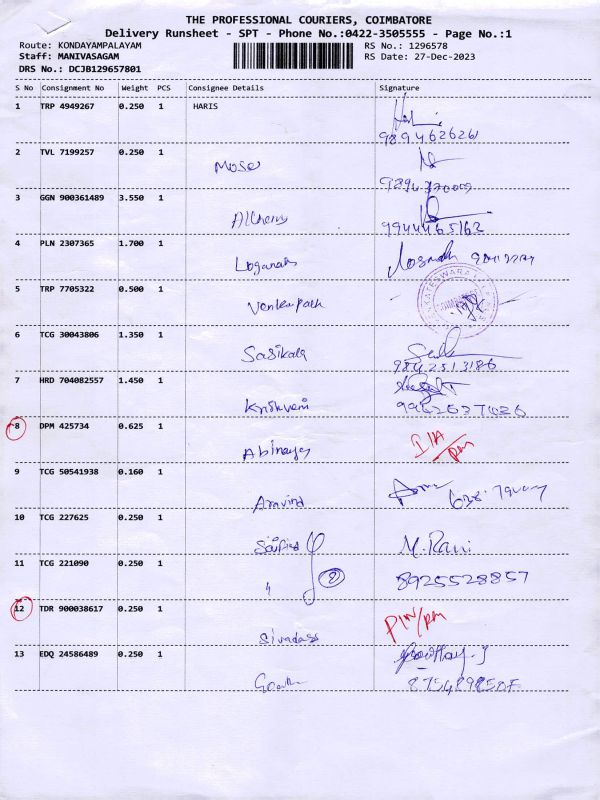 THE PROFESSIONAL COURIERS, COIMBATORE
Delivery Runsheet - SPT - Phone No.:0422-3505555 - Page No.:1
Route: KONDAYAMPALAYAM RS No.: 1296578
Staff: MANIVASAGAM RS Date: 27-Dec-2023
DRS No.: DCJB129657801
S No Consignment No Weight PCS Consignee Details Signature
1 TRP 4949267 0.250 1 HARIS
9894626261
2 TVL 7199257 0.250 1
Moses
9894370009
3 GGN 900361489 3.550 1
9944465163
4 PLN 2307365 1.700 1
Loganath
5 TRP 7705322 0.500 1
Venkapath
6 TCG 30043806 1.350 1
Sasikala
9842513186
7 HRD 704082557 1.450 1
8 DPM 425734 0.625 1
Abinaya
9 TCG 50541938 0.160 1
Aravind
10 TCG 227625 0.250 1
M. Rani
11 TCG 221090 0.250 1
2 8925528857
12 TDR 900038617 0.250 1
PIN/PM
Sivadass
13 EDQ 24586489 0.250 1